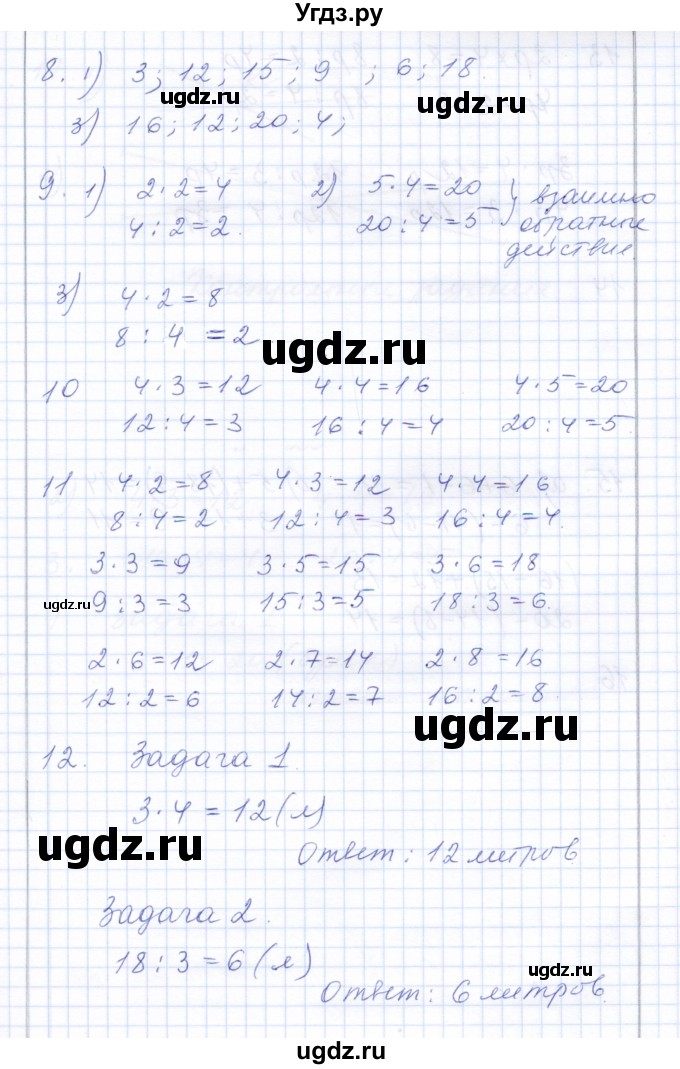 Угдз.ру
8. 1) 3; 12; 15; 9 ; 6; 18.
ugdz.ru ugdz.ru
3) 16; 12; 20; 4;
9. 1) 2·2=4 2) 5·4=20 } взаимно
4:2=2. 20:4=5 обратные
действие.
3) 4·2=8
8:4=2
ugdz.ru
10 4·3=12 4·4=16 4·5=20
12:4=3 16:4=4 20:4=5.
11 4·2=8 4·3=12 4·4=16
8:4=2 12:4=3 16:4=4.
3·3=9 3·5=15 3·6=18
ugdz.ru
9:3=3 15:3=5 18:3=6.
2·6=12 2·7=14 2·8=16
12:2=6 14:2=7 16:2=8.
ugdz.ru
12. Задача 1.
3·4=12(л)
ugdz.ru
Ответ: 12 литров.
Задача 2.
18:3=6(л)
ugdz.ru
Ответ: 6 литров.
ugdz.ru